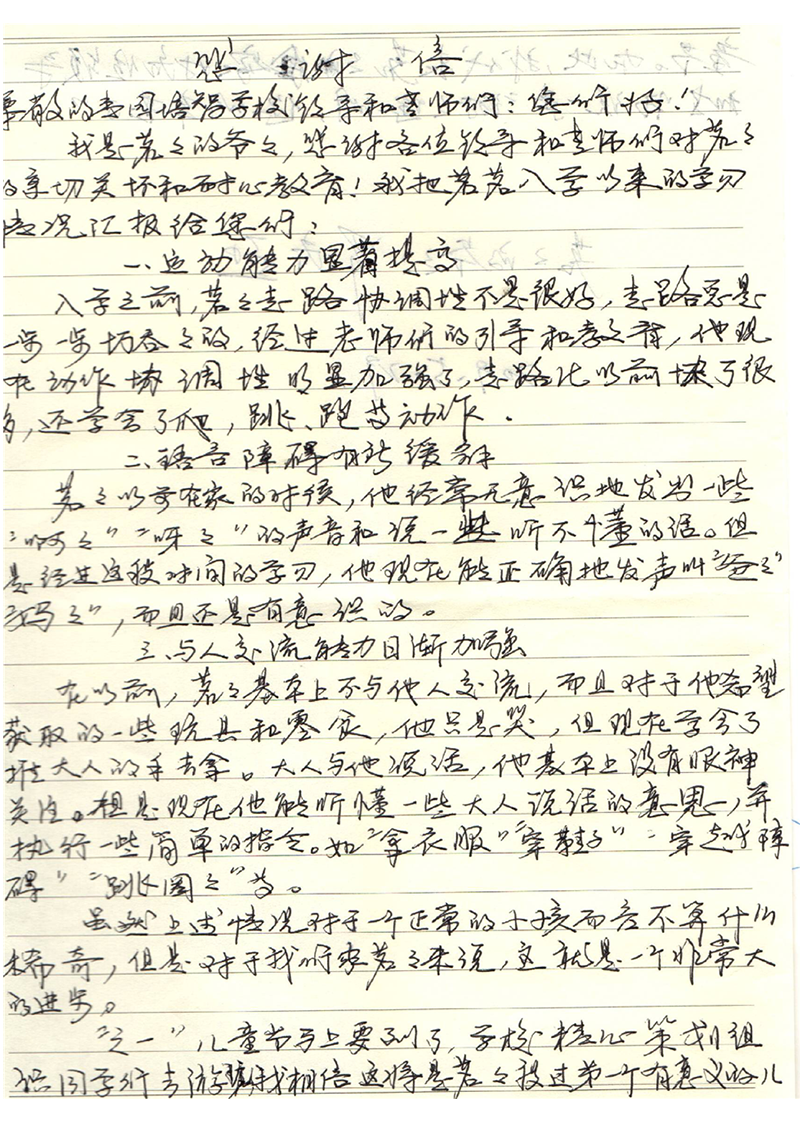 感谢信
尊敬的志园培智学校领导和老师们：您们好！
我是若々的爷々，感谢各位领导和老师们对若々
的亲切关怀和耐心教育！我把若若入学以来的学习
情况汇报给您们：
一、运动能力显著提高
入学之前，若々走路协调性不是很好，走路总是
一步一步切吞々的，经过老师们的引导和教育，他现
在动作协调性明显加强了，走路比以前快了很
多，还学会了爬，跳、跑等动作．
二、语言障碍有所缓解
若々以前在家的时侯，他经常无意识地发出一些
“啊々”“呀々”的声音和说一些听不懂的话。但
是经过这段时间的学习，他现在能正确地发声叫“爸々”
“妈々”，而且还是有意识的。
三、与人交流能力日渐加强
在以前，若々基本上不与他人交流，而且对于他希望
获取的一些玩具和零食，他只是哭，但现在学会了
拉大人的手去拿。大人与他说话，他基本上没有眼神
关注。但是现在他能听懂一些大人说话的意思，并
执行一些简单的指令。如“拿衣服”“穿鞋子”“穿越障
碍”“跳圈々”等。
虽然上述情况对于一个正常的小孩而言不算什么
稀奇，但是对于我们家若々来说，这就是一个非常大
的进步。
“六一”儿童节马上要到了，学校精心策划组
织同学们去游 我相信这将是若々度过第一个有意义的儿